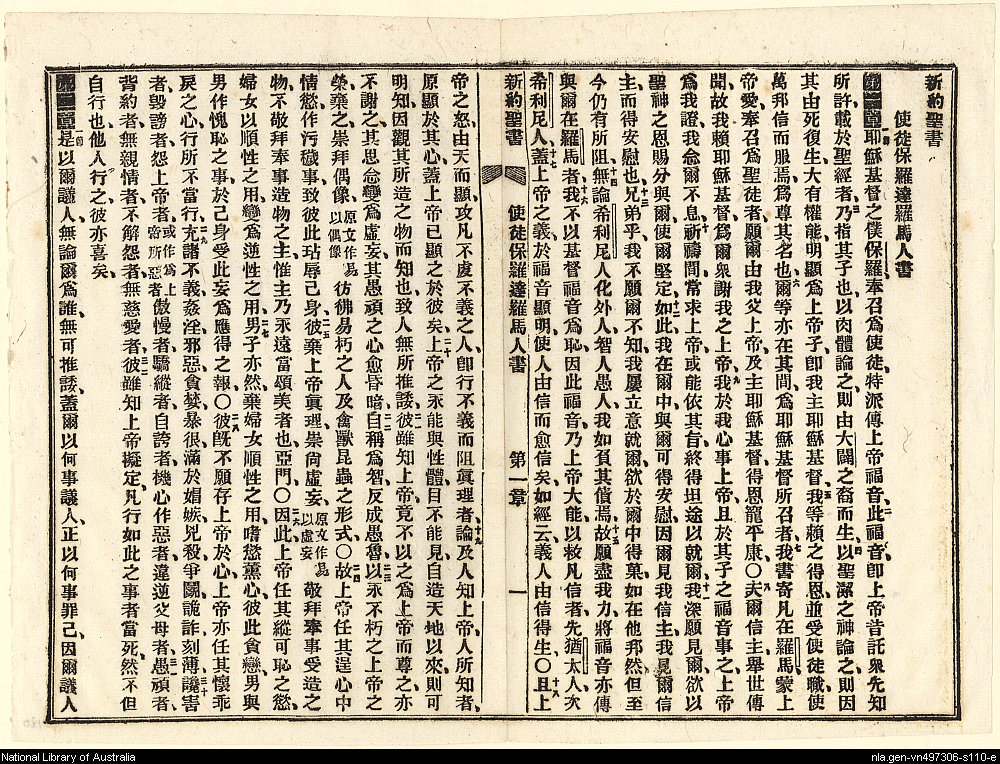 新約聖書
使徒保羅達羅馬人書
第一章耶穌基督之僕保羅奉召爲使徒、特派傳上帝福音、此福音、卽上帝昔託衆先知
所許載於聖經者、乃指其子也、以肉體論之、則由大闢之裔而生、以聖潔之神論之、則因
其由死復生、大有權能、明顯爲上帝子、卽我主耶穌基督、我等賴之得恩、並受使徒職、使
萬邦信而服焉、爲尊其名也、爾等亦在其間、爲耶穌基督所召者、我書寄凡在羅馬、蒙上
帝愛、奉召爲聖徒者、願爾由我父上帝、及主耶穌基督、得恩寵平康〇夫爾信主、舉世傳
聞、故我賴耶穌基督、爲爾衆謝我之上帝、我於我心事上帝、且於其子之福音事之、上帝
爲我證、我念爾不息、祈禱間、常求上帝、或能依其旨、終得坦途以就爾、我深願見爾、欲以
聖神之恩賜分與爾、使爾堅定、如此、我在爾中、與爾可得安慰、因爾見我信主、我見爾信
主、而得安慰也、兄弟乎、我不願爾不知我屢立意就爾、欲於爾中得菓、如在他邦然、但至
今仍有所阻、無論希利尼人、化外人、智人、愚人、我如負其債焉、故願盡我力、將福音亦傳
與爾在羅馬者、我不以基督福音爲恥、因此福音、乃上帝大能、以救凡信者、先猶太人、次
希利尼人、蓋上帝之義、於福音顯明、使人由信而愈信矣、如經云、義人由信得生〇且上
新約聖書 使徒保羅達羅馬人書 第一章 一
帝之怒、由天而顯、攻凡不虔不義之人、卽行不義而阻眞理者、論及人知上帝、人所知者、
原顯於其心、蓋上帝已顯之於彼矣、上帝之永能與性體、目不能見、自造天地以來、則可
明知、因觀其所造之物而知也、致人無所推諉、彼雖知上帝、竟不以之爲上帝而尊之、亦
不謝之、其思念變爲虛妄、其愚頑之心愈昏暗、自稱爲智、反成愚魯、以永不朽之上帝之
榮、棄之崇拜偶像、原文作易以偶像彷彿易朽之人、及禽獸昆蟲之形式〇故上帝任其逞心中
情慾、作汚穢事、致彼此玷辱己身、彼棄上帝眞理、崇尙虛妄、原文作易以虛妄敬拜奉事受造之
物、不敬拜奉事造物之主、惟主乃永遠當頌美者也、亞門〇因此上帝任其縱可恥之慾、
婦女以順性之用、變爲逆性之用、男子亦然、棄婦女順性之用、嗜慾薰心、彼此貪戀、男與
男作愧恥之事、於己身受此妄爲應得之報〇彼旣不願存上帝於心、上帝亦任其懷乖
戾之心、行所不當行、充諸不義、姦淫、邪惡、貪婪、暴很、滿於媢嫉、兇殺、爭鬬、詭詐、刻薄、讒害
者、毀謗者、怨上帝者、或作爲上帝所惡者傲慢者、驕縱者、自誇者、機心作惡者、違逆父母者、愚頑者、
背約者、無親情者、不解怨者、無慈愛者、彼雖知上帝擬定、凡行如此之事者當死、然不但
自行也、他人行之、彼亦喜矣、
第二章是以爾議人、無論爾爲誰、無可推諉、蓋爾以何事議人、正以何事罪己、因爾議人
National Library of Australia
nla.gen-vn497306-s110-e